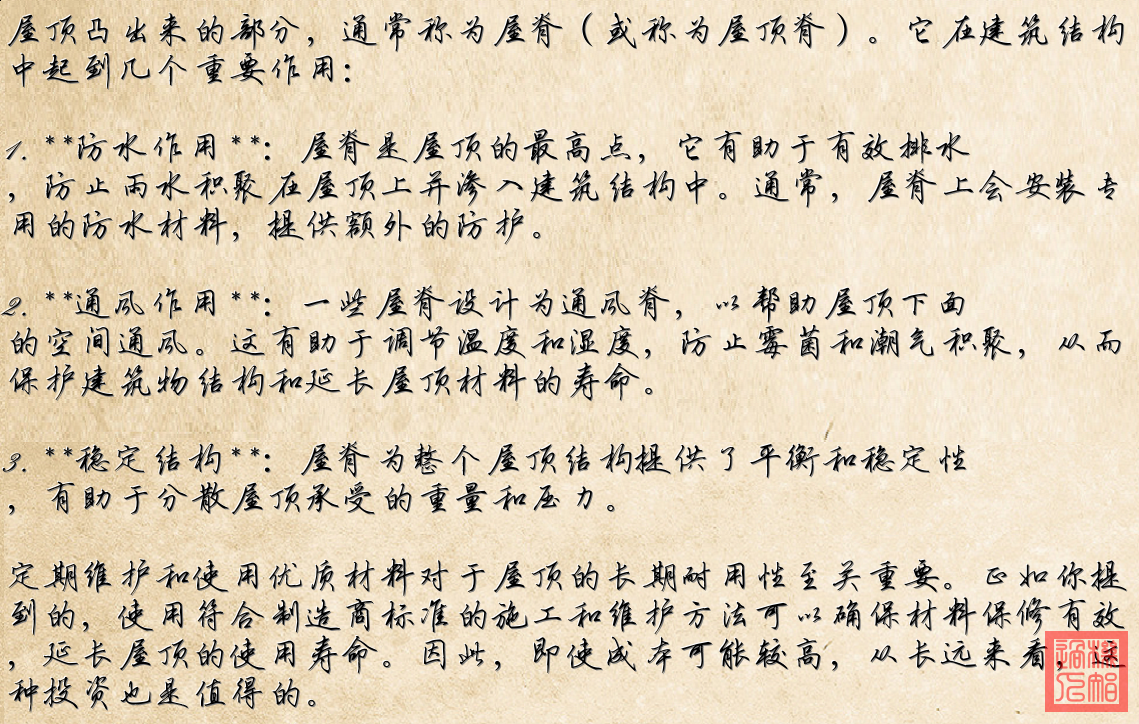 屋顶凸出来的部分，通常称为屋脊（或称为屋顶脊）。它在建筑结构
中起到几个重要作用：
1. **防水作用**：屋脊是屋顶的最高点，它有助于有效排水
，防止雨水积聚在屋顶上并渗入建筑结构中。通常，屋脊上会安装专
用的防水材料，提供额外的防护。
2. **通风作用**：一些屋脊设计为通风脊，以帮助屋顶下面
的空间通风。这有助于调节温度和湿度，防止霉菌和潮气积聚，从而
保护建筑物结构和延长屋顶材料的寿命。
3. **稳定结构**：屋脊为整个屋顶结构提供了平衡和稳定性
，有助于分散屋顶承受的重量和压力。
定期维护和使用优质材料对于屋顶的长期耐用性至关重要。正如你提
到的，使用符合制造商标准的施工和维护方法可以确保材料保修有效
，延长屋顶的使用寿命。因此，即使成本可能较高，从长远来看，这
种投资也是值得的。